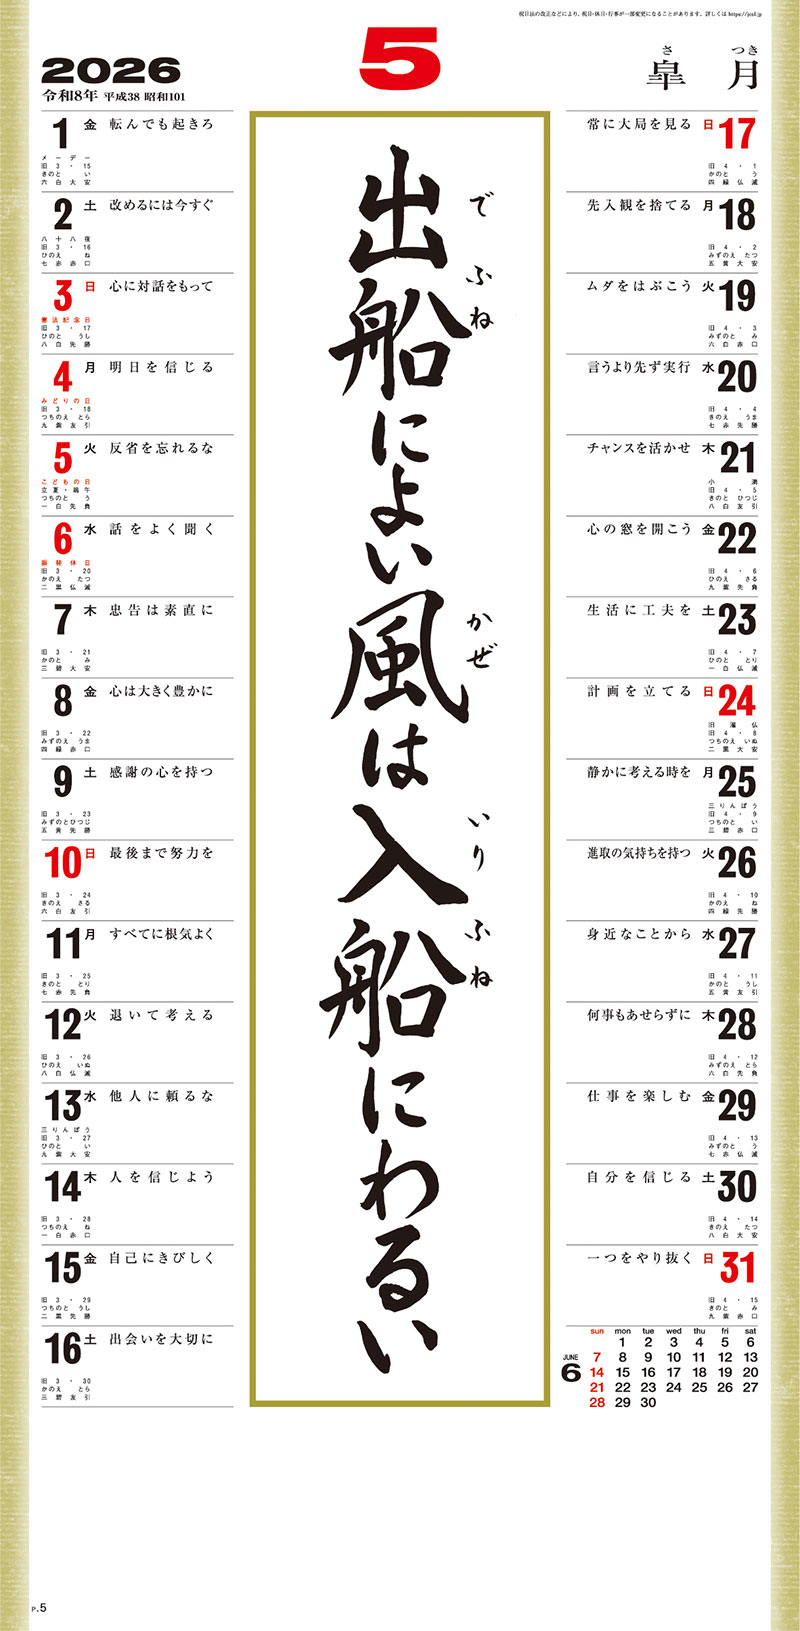 祝日法の改正などにより、祝日・休日・行事が一部変更になることがあります。詳しくは https://jcal.jp
2026
令和8年 平成38 昭和101
5
さ つき
皐 月
出船によい風は入船にわるい
で ふね かぜ いり ふね
1 金 転んでも起きろ
メーデー
旧 3 ・ 15
きのと い
六白大安
2 土 改めるには今すぐ
八十八夜
旧 3 ・ 16
ひのえ ね
七赤赤口
3 日 心に対話をもって
憲法記念日
旧 3 ・ 17
ひのと うし
八白先勝
4 月 明日を信じる
みどりの日
旧 3 ・ 18
つちのえ とら
九紫友引
5 火 反省を忘れるな
こどもの日
立夏・端午
つちのと う
一白先負
6 水 話をよく聞く
振替休日
旧 3 ・ 20
かのえ たつ
二黒仏滅
7 木 忠告は素直に
旧 3 ・ 21
かのと み
三碧大安
8 金 心は大きく豊かに
旧 3 ・ 22
みずのえ うま
四緑赤口
9 土 感謝の心を持つ
旧 3 ・ 23
みずのとひつじ
五黄先勝
10 日 最後まで努力を
旧 3 ・ 24
きのえ さる
六白友引
11 月 すべてに根気よく
旧 3 ・ 25
きのと とり
七赤先負
12 火 退いて考える
旧 3 ・ 26
ひのえ いぬ
八白仏滅
13 水 他人に頼るな
三りんぼう
旧 3 ・ 27
ひのと い
九紫大安
14 木 人を信じよう
旧 3 ・ 28
つちのえ ね
一白赤口
15 金 自己にきびしく
旧 3 ・ 29
つちのと うし
二黒先勝
16 土 出会いを大切に
旧 3 ・ 30
かのえ とら
三碧友引
常に大局を見る 日 17
旧 4 ・ 1
かのと う
四緑仏滅
先入観を捨てる 月 18
旧 4 ・ 2
みずのえ たつ
五黄大安
ムダをはぶこう 火 19
旧 4 ・ 3
みずのと み
六白赤口
言うより先ず実行 水 20
旧 4 ・ 4
きのえ うま
七赤先勝
チャンスを活かせ 木 21
小満
旧 4 ・ 5
きのと ひつじ
八白友引
心の窓を開こう 金 22
旧 4 ・ 6
ひのえ さる
九紫先負
生活に工夫を 土 23
旧 4 ・ 7
ひのと とり
一白仏滅
計画を立てる 日 24
旧灌仏
旧 4 ・ 8
つちのえ いぬ
二黒大安
静かに考える時を 月 25
三りんぼう
旧 4 ・ 9
つちのと い
三碧赤口
進取の気持ちを持つ 火 26
旧 4 ・ 10
かのえ ね
四緑先勝
身近なことから 水 27
旧 4 ・ 11
かのと うし
五黄友引
何事もあせらずに 木 28
旧 4 ・ 12
みずのえ とら
六白先負
仕事を楽しむ 金 29
旧 4 ・ 13
みずのと う
七赤仏滅
自分を信じる 土 30
旧 4 ・ 14
きのえ たつ
八白大安
一つをやり抜く 日 31
旧 4 ・ 15
きのと み
九紫赤口
JUNE
6
sun mon tue wed thu fri sat
1 2 3 4 5 6
7 8 9 10 11 12 13
14 15 16 17 18 19 20
21 22 23 24 25 26 27
28 29 30
P.5